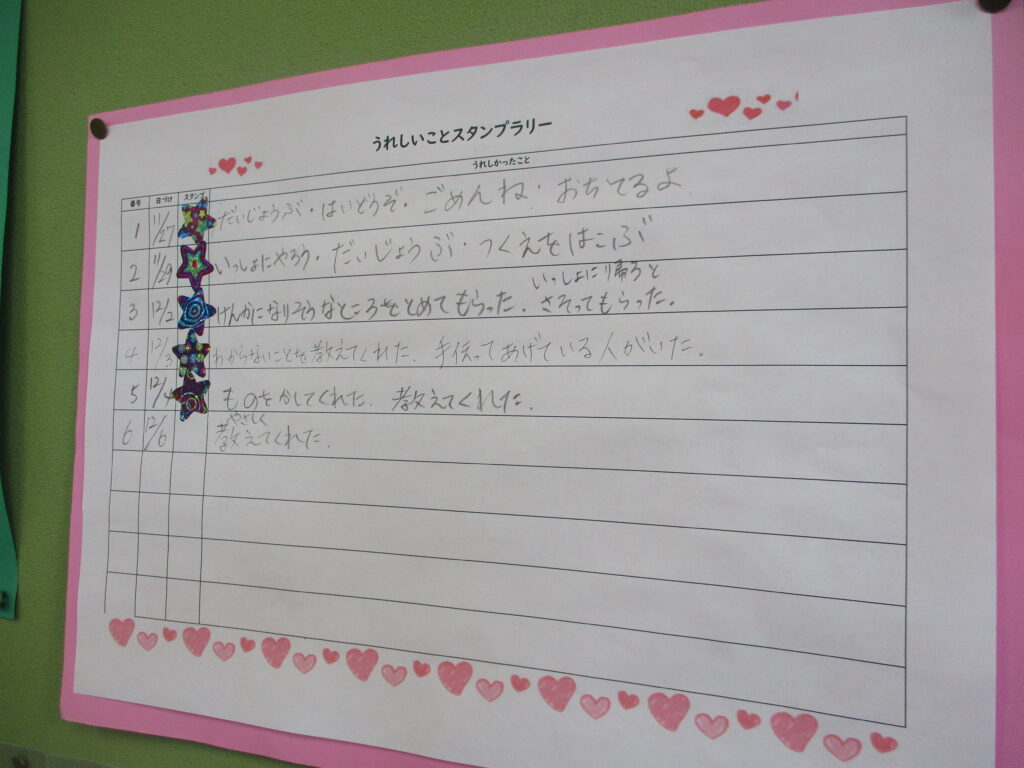 うれしいことスタンプラリー
番号 日づけ スタンプ うれしかったこと
1 11/27 だいじょうぶ・はいどうぞ・ごめんね・おちてるよ
2 11/29 いっしょにやろう・だいじょうぶ・つくえをはこぶ
いっしょに帰ろと
3 12/2 けんかになりそうなところをとめてもらった。さそってもらった。
4 12/3 わからないことを教えてくれた。手伝ってあげている人がいた。
5 12/4 ものをかしてくれた。教えてくれした。
やさしく
6 12/6 教えてくれた。